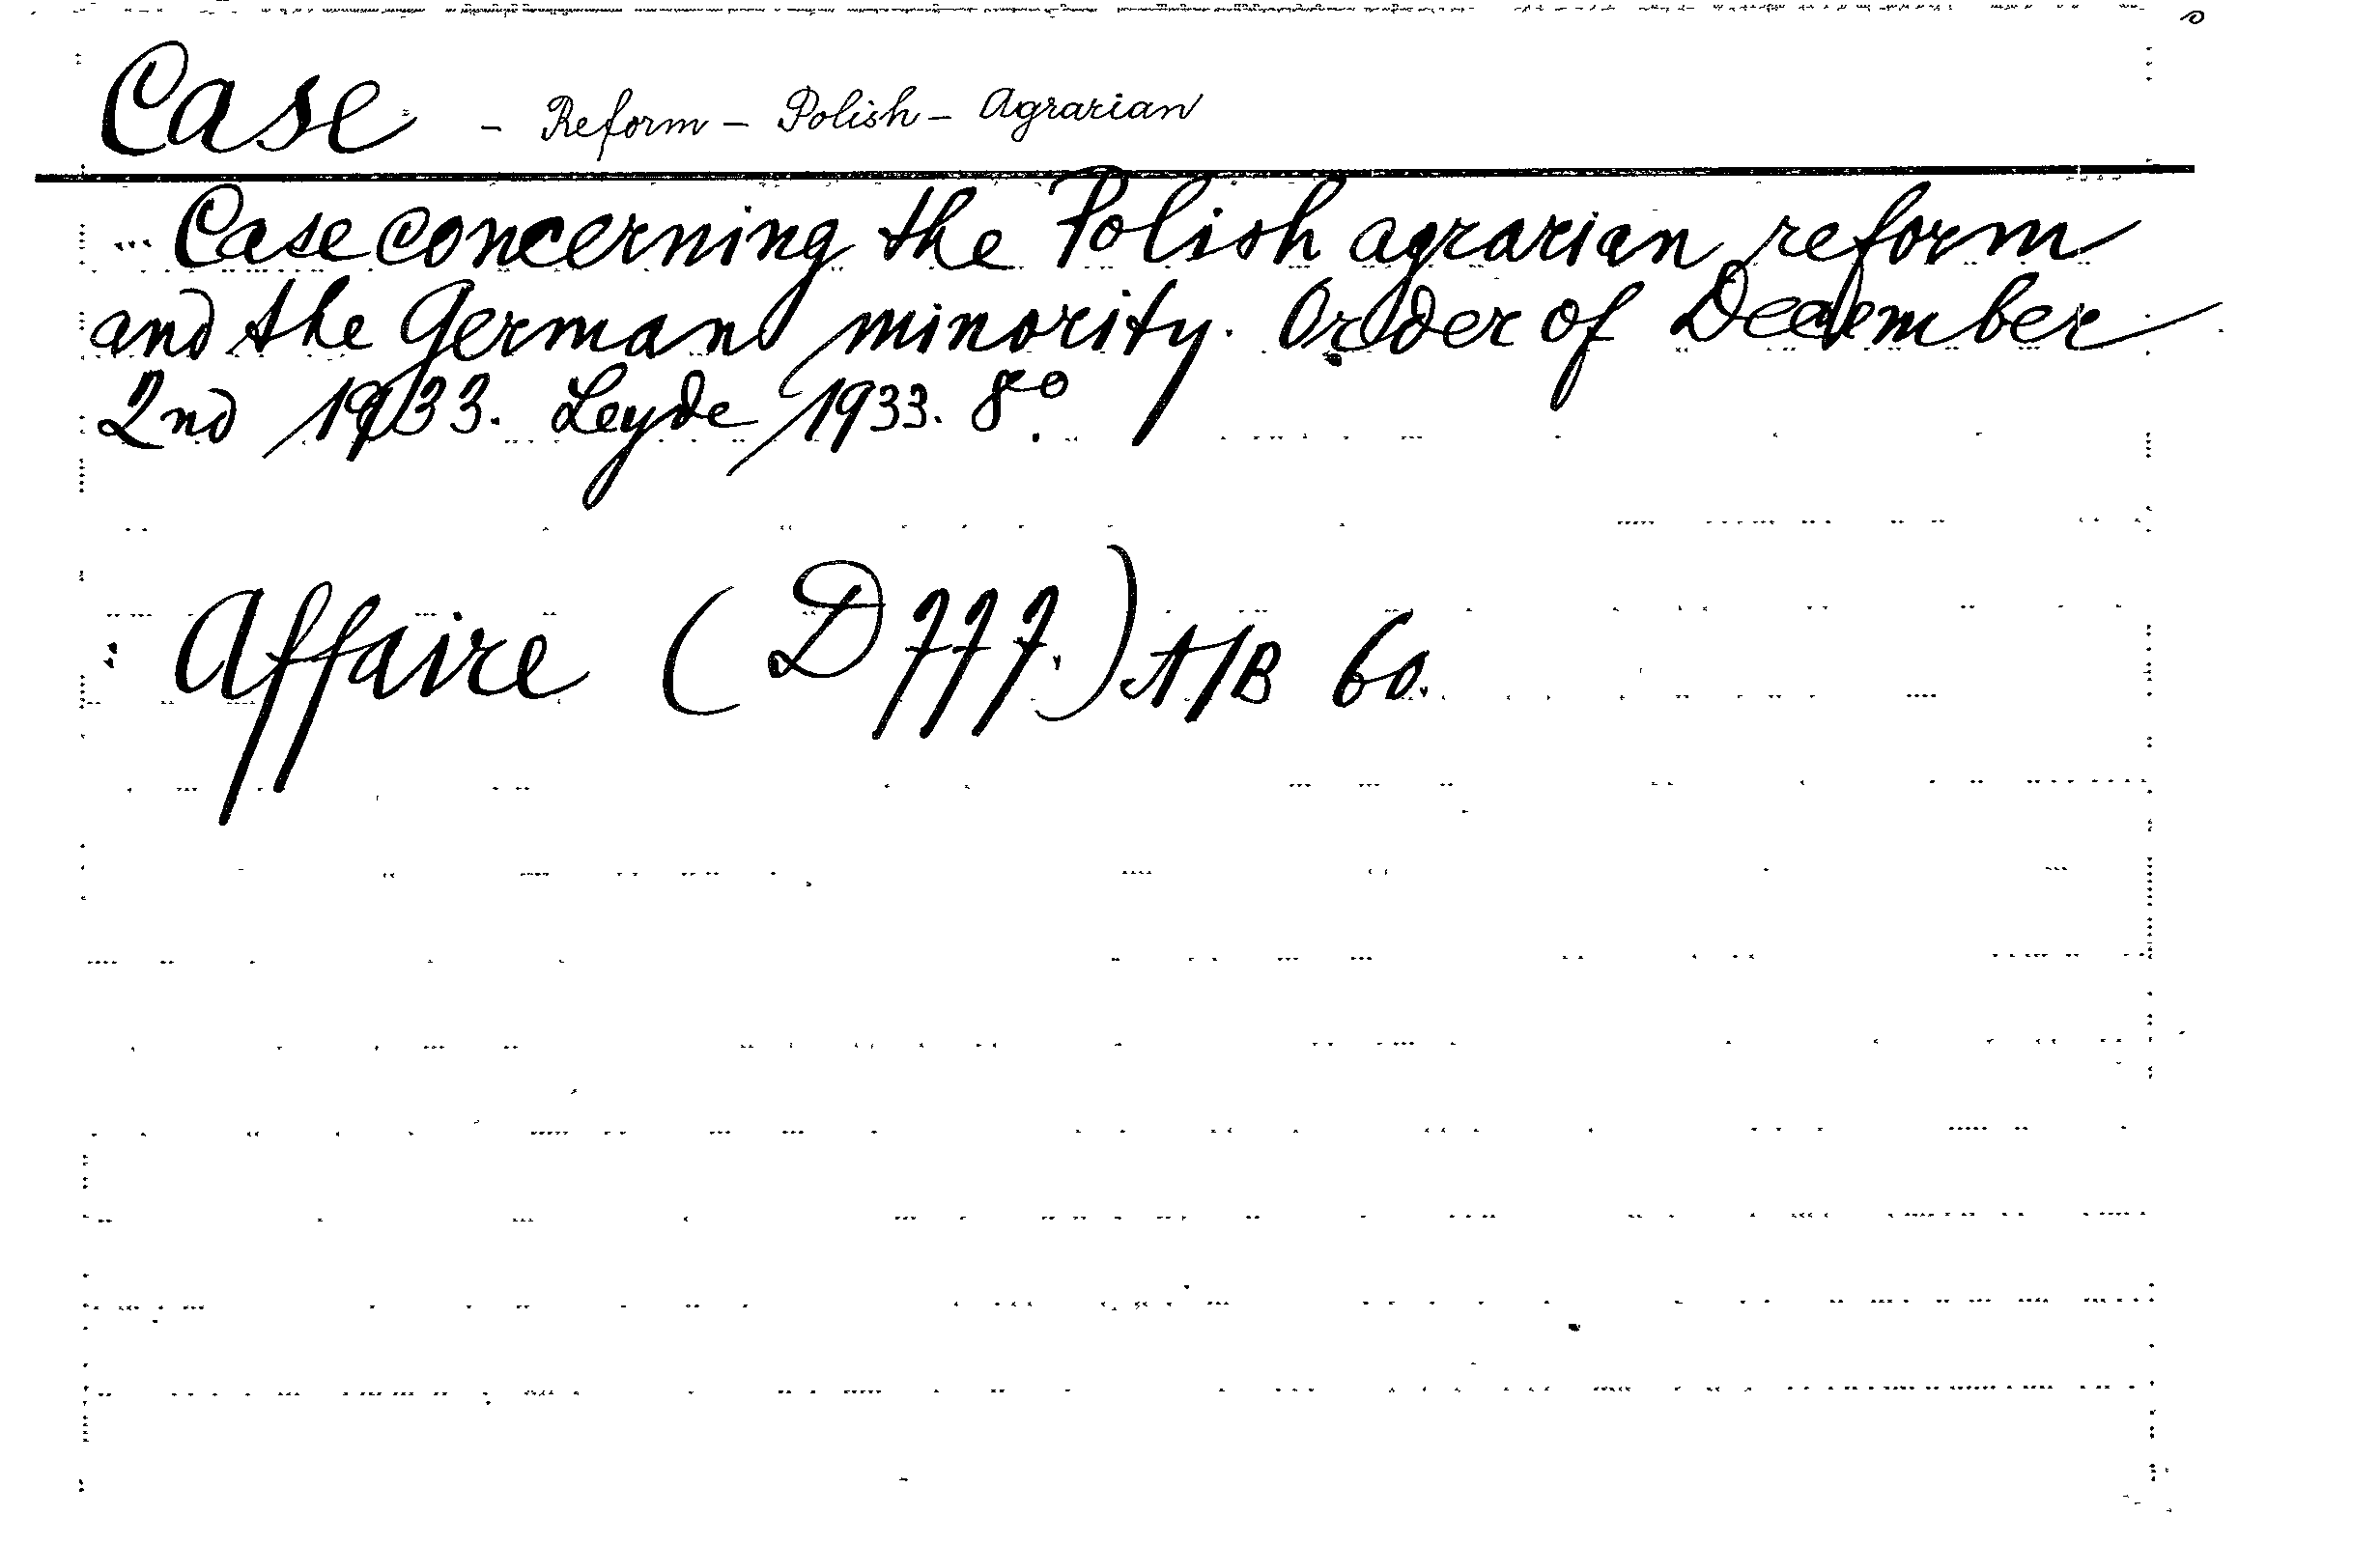 Case - Reform - Polish - Agrarian
Case concerning the Polish agrarian reform
and the German minority. Order of December
2nd 1933. Leyde 1933. 8°.
Affaire (D 777.) A/B 60.